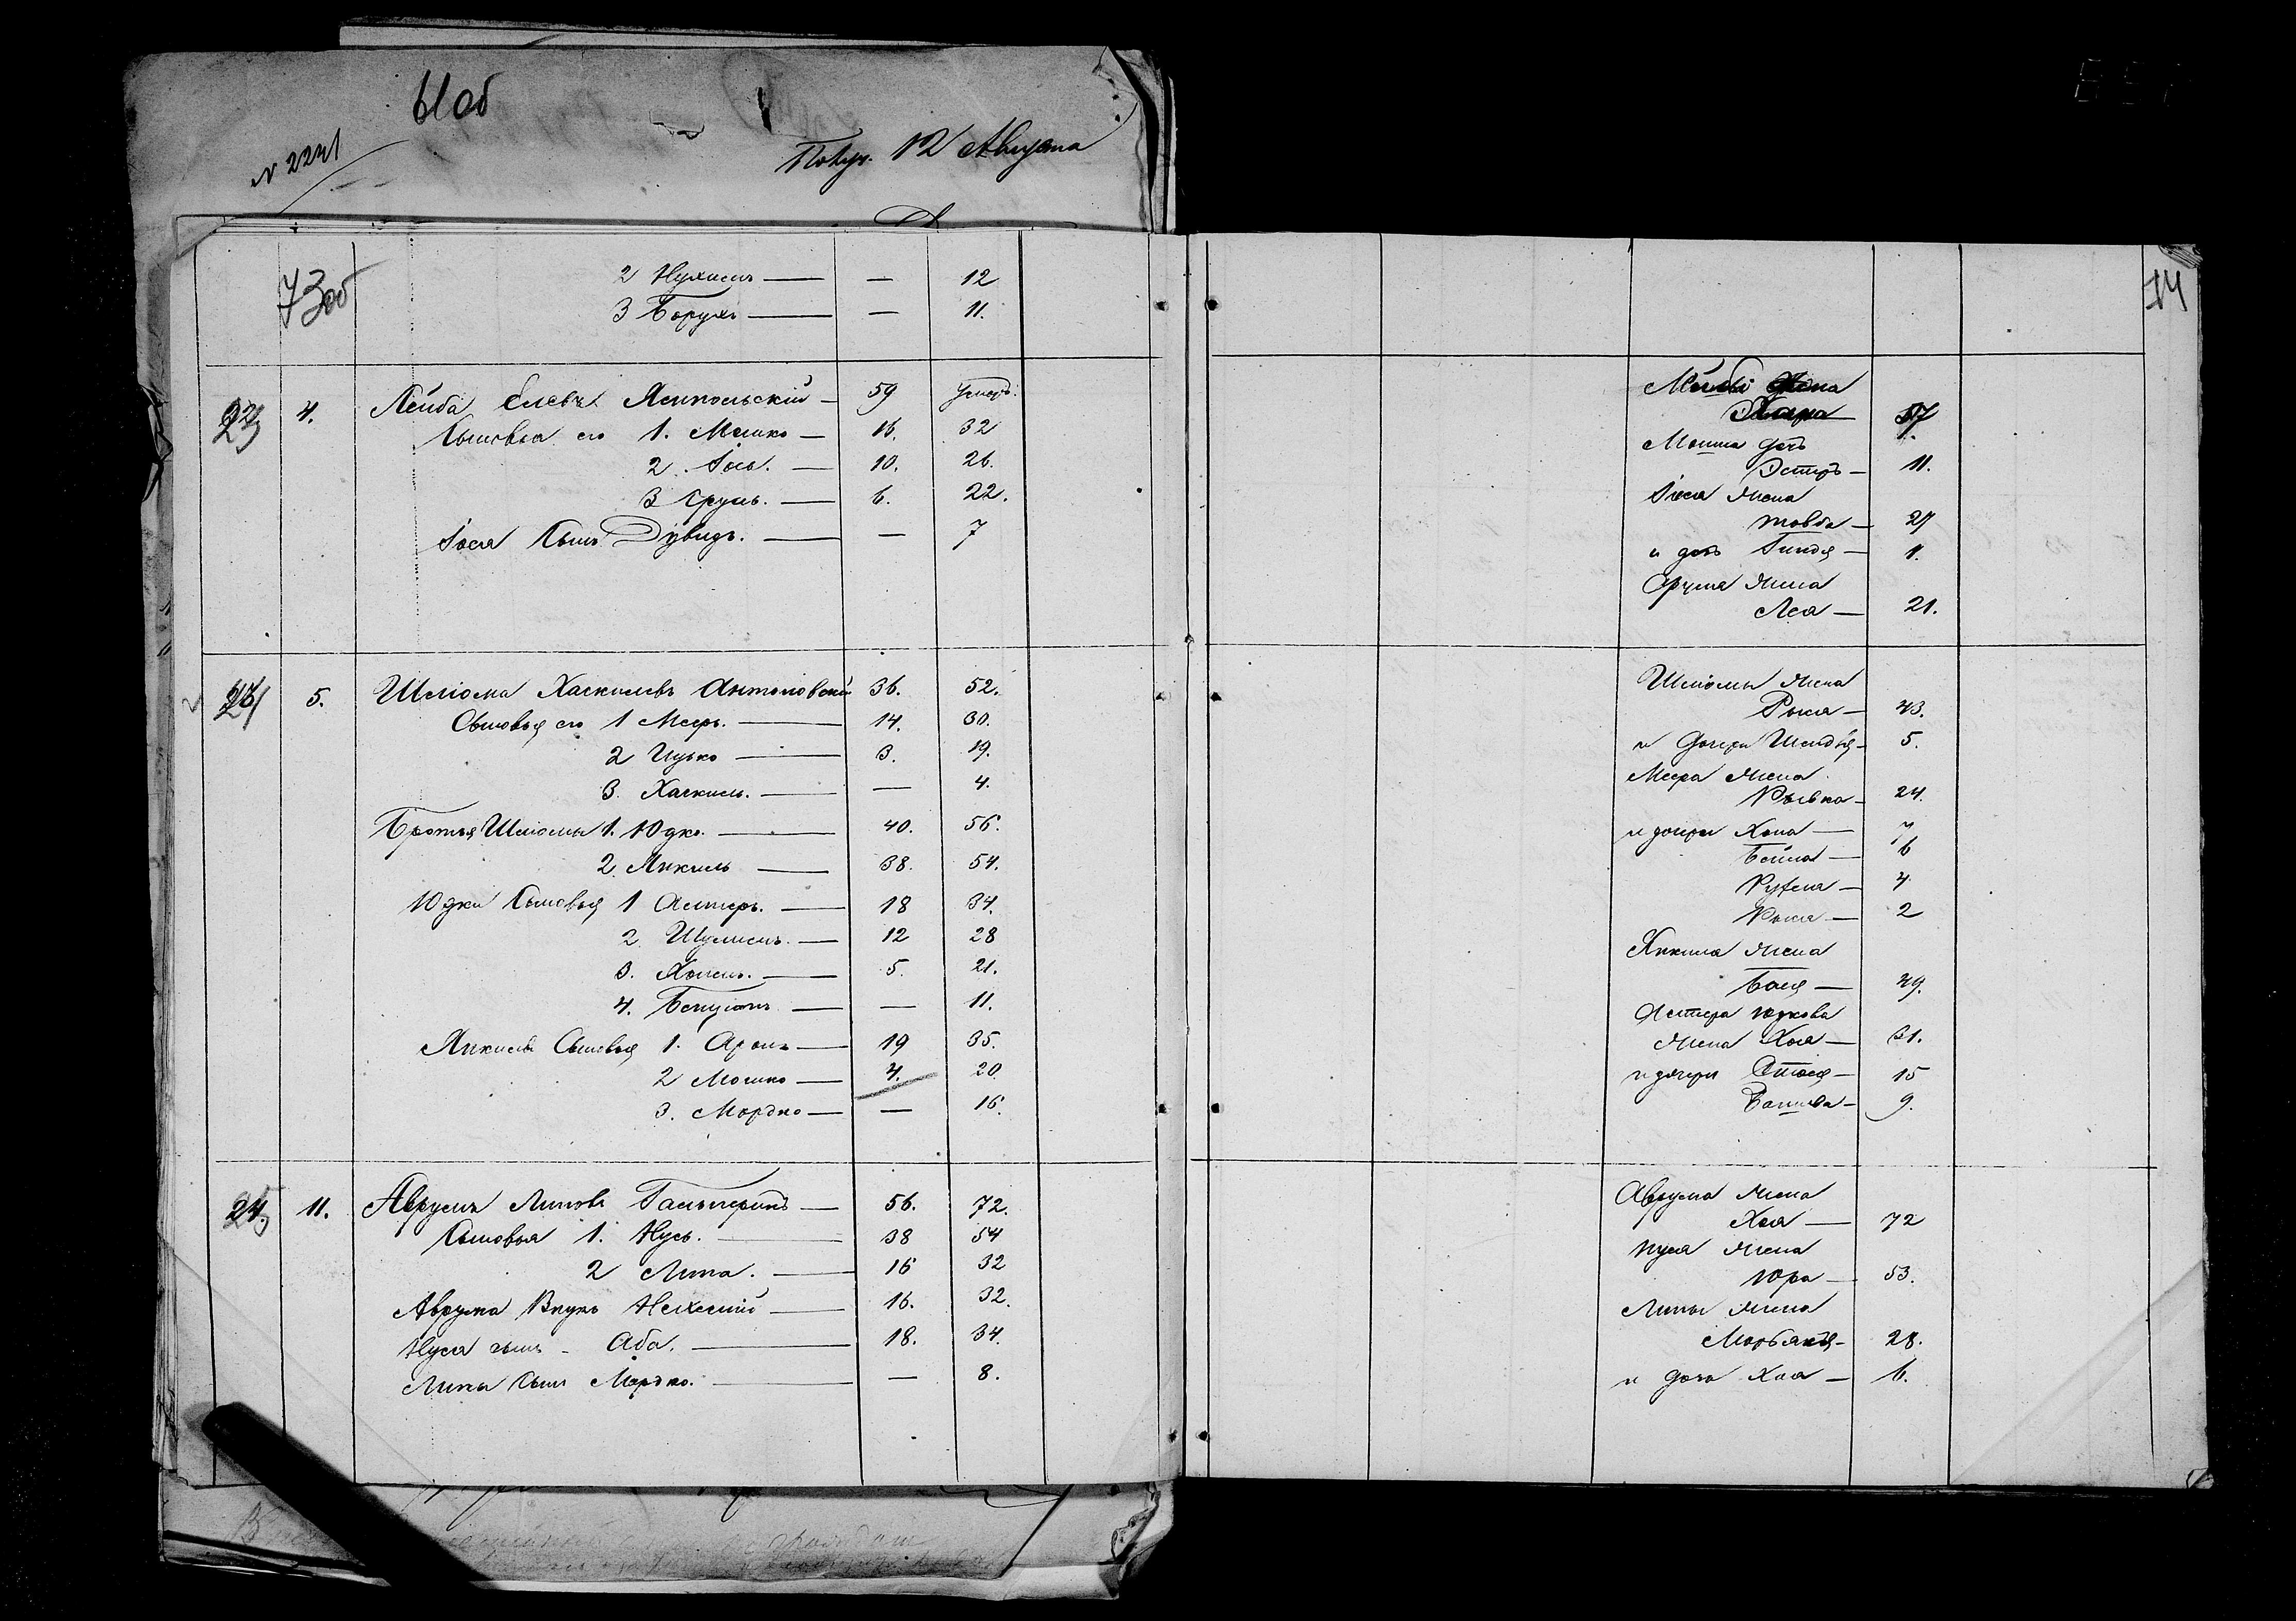 61 об
N 2241
Получ. 12 Августа
73 об
2 Нухимъ — — 12
3 Борухъ — — 11.
23 4. Лейба Елевъ Ямпольскій — 59 Умеръ.
Сыновья его 1. Мошко — 16. 32
2. Іось. — 10. 26.
3 Срулъ. — 6. 22.
Іося Сынъ Дувидъ. — — 7
24 5. Шліома Хаскилевъ Антоновскій 36. 52.
Сыновья его 1 Мееръ. — 14. 30.
2 Ицько — 3. 19.
3. Хаскиль. — — 4.
Братья Шліомы 1. Юдко. — 40. 56.
2. Янкиль — 38. 54.
Юдки Сыновья 1 Аптеръ. — 18 34.
2. Шулимъ. — 12 28
3. Хаимъ. — 5. 21.
4. Бенционъ — — 11.
Янкиля Сыновья 1. Аронъ — 19 35.
2 Мошко — 4. 20
3. Мордко — — 16.
11. Аврумъ Липовъ Гальперинъ — 56. 72.
Сыновья 1. Нусь. — 38 54
2 Липа. — 16 32
Аврума Внукъ — 16. 32.
Нуся сынъ - Аба. — 18. 34.
Липы Сынъ Мордко. — — 8.
74
жена
57
Мошки дочь
Эстеръ — 11.
Іося жена
Товба — 27
и дочь Гиндя — 1.
Срула жена
Лея — 21.
Шліомы жена
Рыся — 43.
и дочери Шендля — 5.
Меера жена
Рывка — 24.
и дочери Хана — 7
Бейла — 6
4
2
Янкиля жена
Бася — 49.
Юдкова
жена Хая — 31.
и дочери 15
9.
Аврума жена
Хая — 72
Нуся жена
Юра — 53.
Липы жена
28.
и дочь Хая — 6.